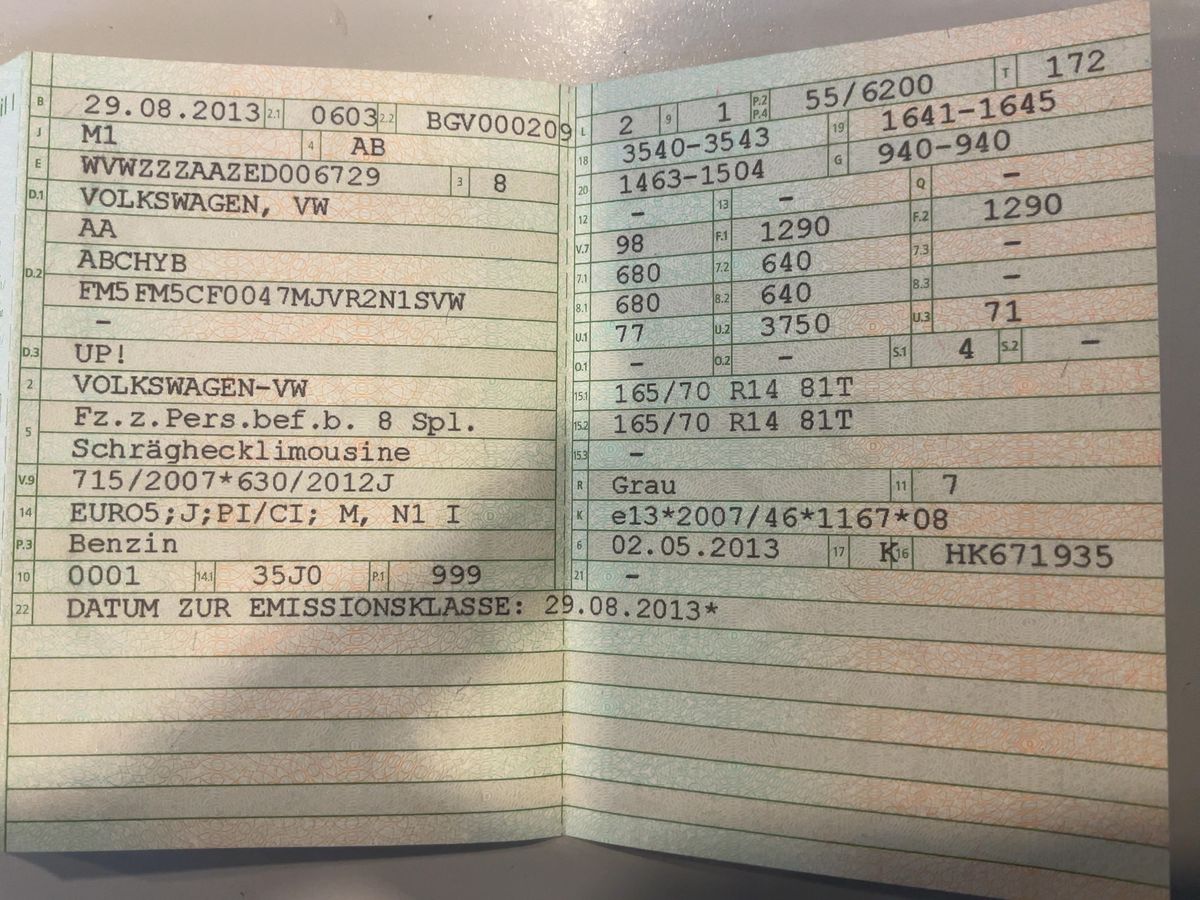 B 29.08.2013 2.1 0603 2.2 BGV000209
J M1 4 AB
E WVWZZZAAZED006729 3 8
D.1 VOLKSWAGEN, VW
AA
D.2 ABCHYB
FM5FM5CF0047MJVR2N1SVW
–
D.3 UP!
2 VOLKSWAGEN-VW
5 Fz.z.Pers.bef.b. 8 Spl.
Schräghecklimousine
V.9 715/2007*630/2012J
14 EURO5;J;PI/CI; M, N1 I
P.3 Benzin
10 0001 14.1 35J0 P.1 999
22 DATUM ZUR EMISSIONSKLASSE: 29.08.2013*
L 2 9 1 P.2 P.4 55/6200 T 172
18 3540-3543 19 1641-1645
20 1463-1504 G 940-940
12 – 13 – Q –
V.7 98 F.1 1290 F.2 1290
7.1 680 7.2 640 7.3 –
8.1 680 8.2 640 8.3 –
U.1 77 U.2 3750 U.3 71
O.1 – O.2 – S.1 4 S.2 –
15.1 165/70 R14 81T
15.2 165/70 R14 81T
15.3 –
R Grau 11 7
K e13*2007/46*1167*08
6 02.05.2013 17 K 16 HK671935
21 –